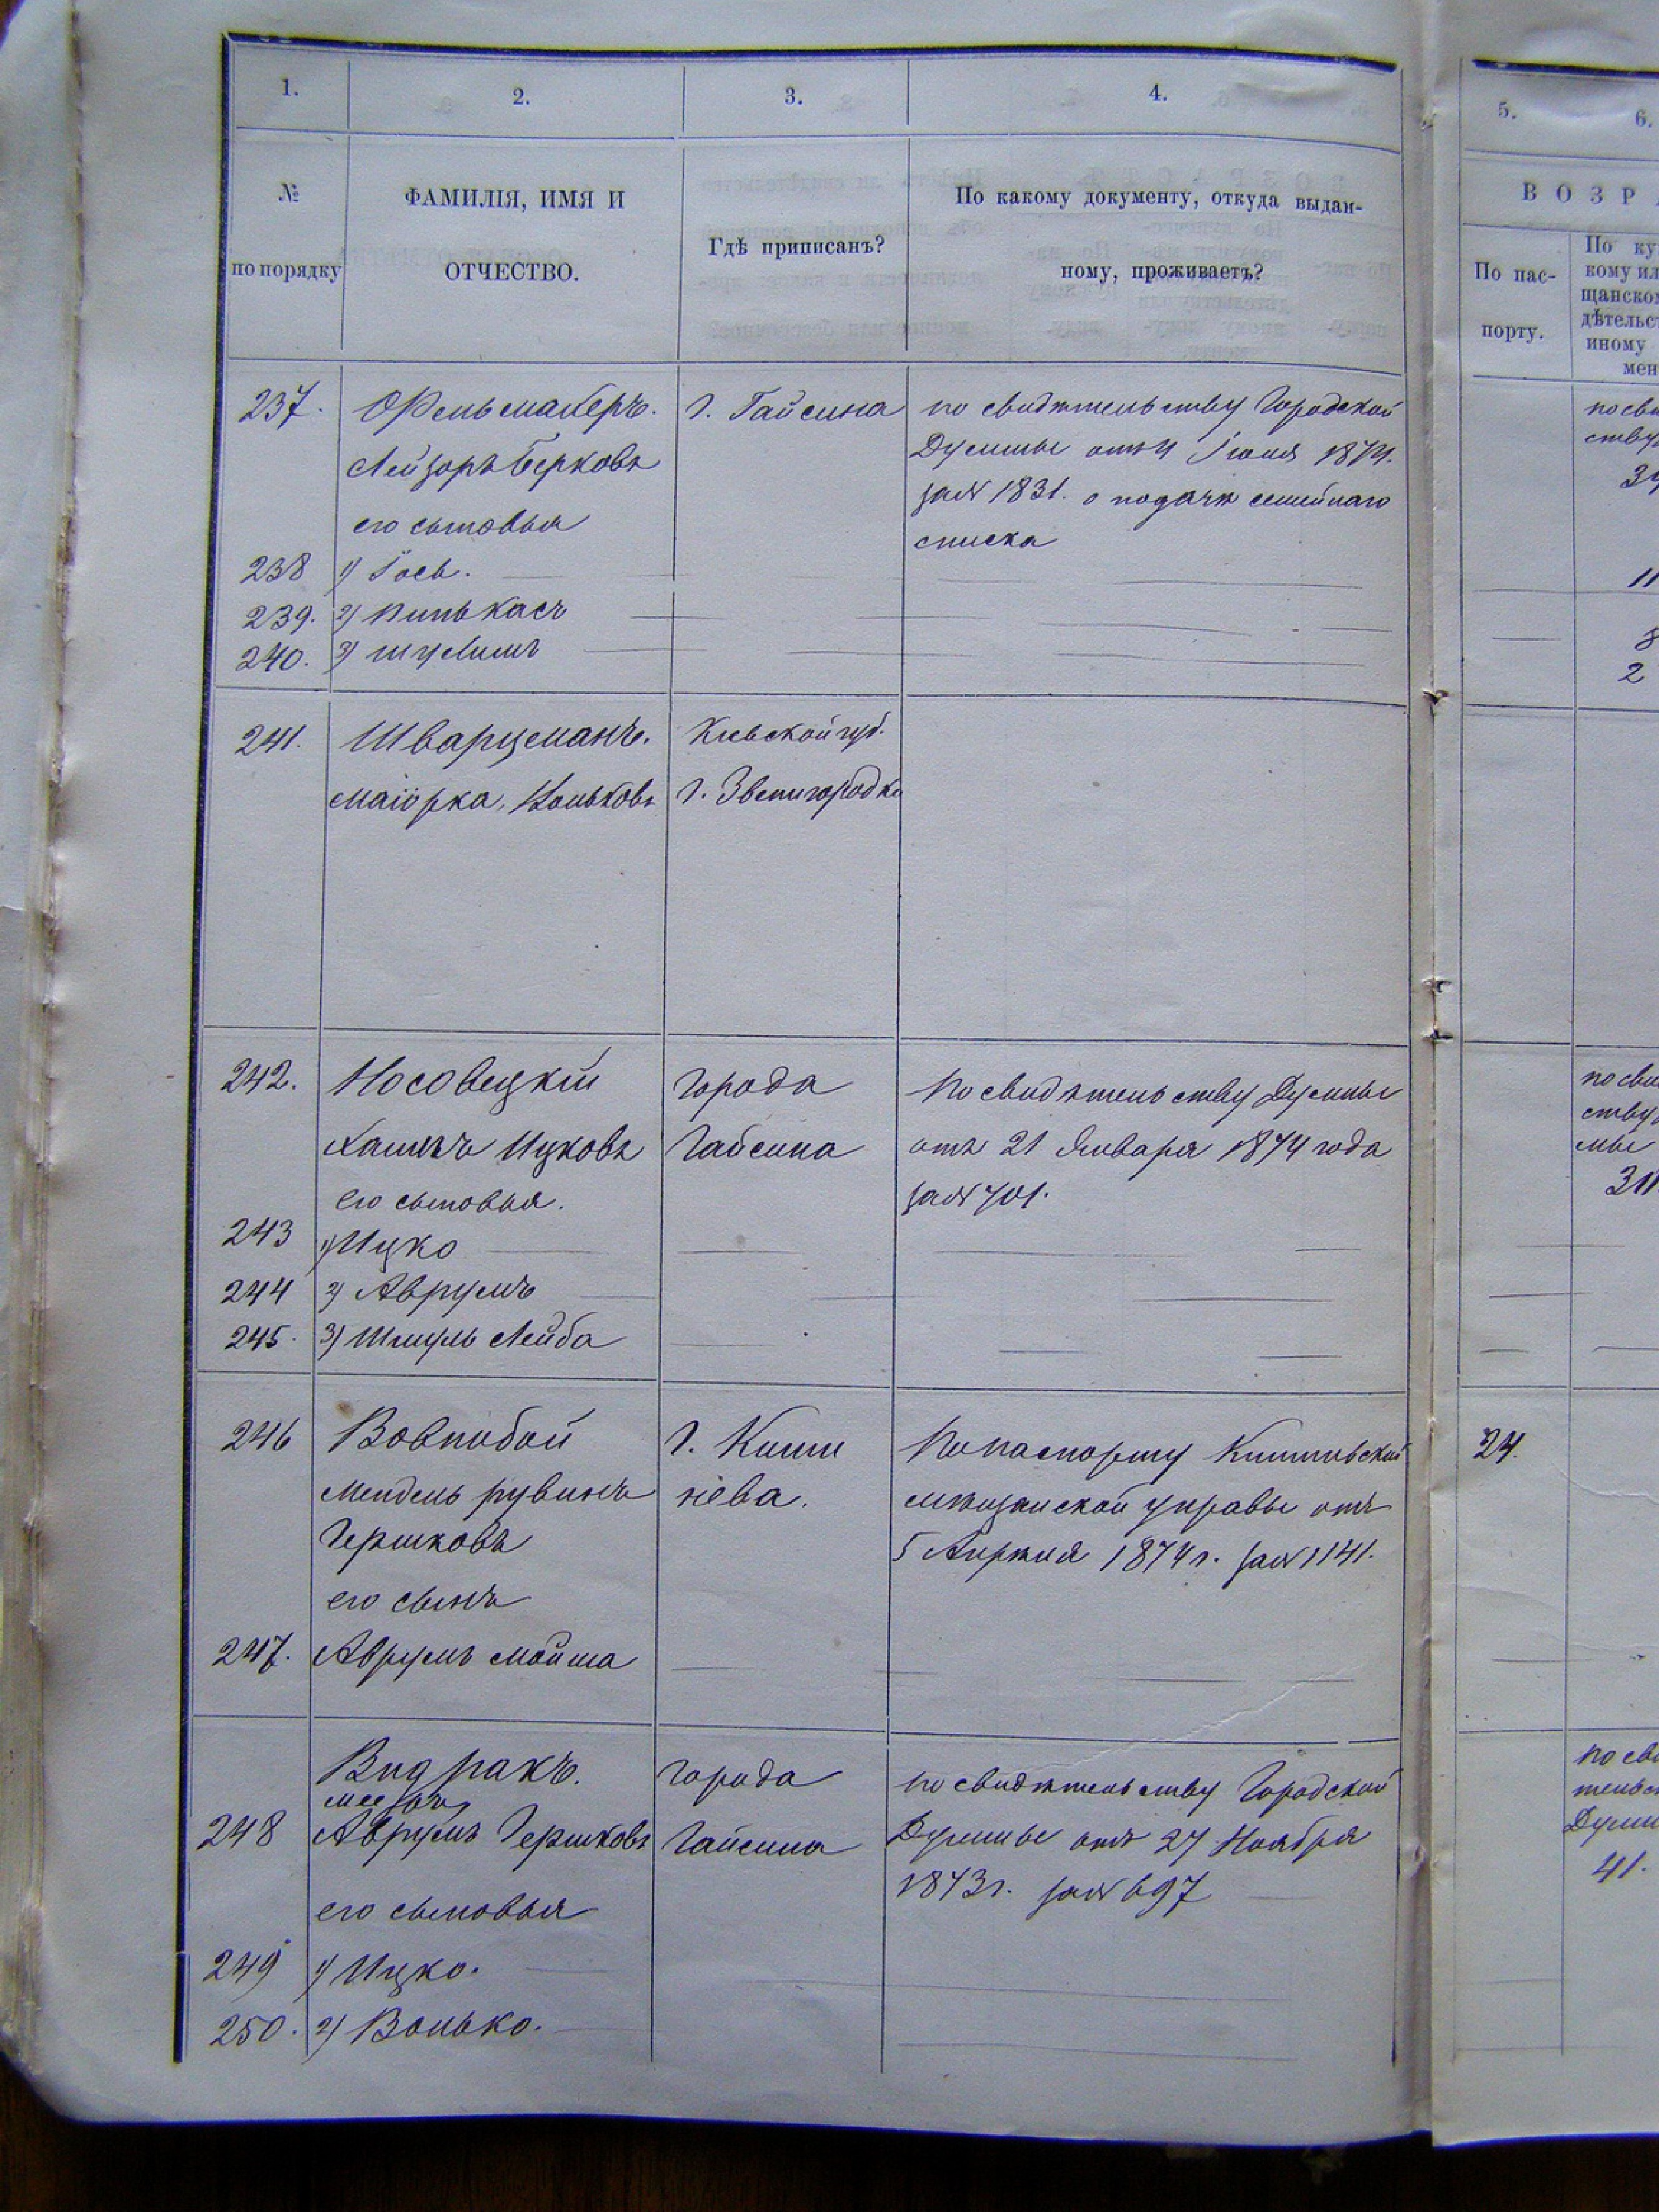 1.
2.
3.
4.
5.
6.
№
по порядку
ФАМИЛІЯ, ИМЯ И
ОТЧЕСТВО.
Гдѣ приписанъ?
По какому документу, откуда выдан-
ному, проживаетъ?
ВОЗР
По пас-
порту.
По ку
кому ил
щанском
дѣтельст
иному
мен
237.
его сыновья
г. Гайсина
по свидѣтельству Городской
Думы отъ 4 Іюня 1874.
за № 1831. о подачѣ семейнаго
списка
по сви
ству
238 1) Іось.
11
239. 2) Пинькасъ
8
240. 3) Шулимъ
2
241. Шварцманъ.
Маіорка,
Кіевской губ.
г. Звенигородки
242. Носовецкій
Хаимъ Ицковъ
его сыновья.
города
Гайсина
По свидѣтельству Думы
отъ 21 Января 1874 года
за № 701.
по сви
ству
мы
243 1) Ицко
244 2) Аврумъ
245. 3) Шмуль Лейба
246 Вовнобой
Мендель Рувинъ
Гершковъ
его сынъ
г. Киши
нева.
По паспорту Кишиневской
мѣщанской управы отъ
5 Апрѣля 1874 г. за № 1141.
24.
247. Аврумъ Мойша
Видракъ.
248 Аврумъ Гершковъ
его сыновья
города
Гайсина
по свидѣтельству Городской
Думы отъ 27 Ноября
1873 г. за № 697
по сви
тельс
Думы
41.
249 1) Ицко.
250. 2) Волько.